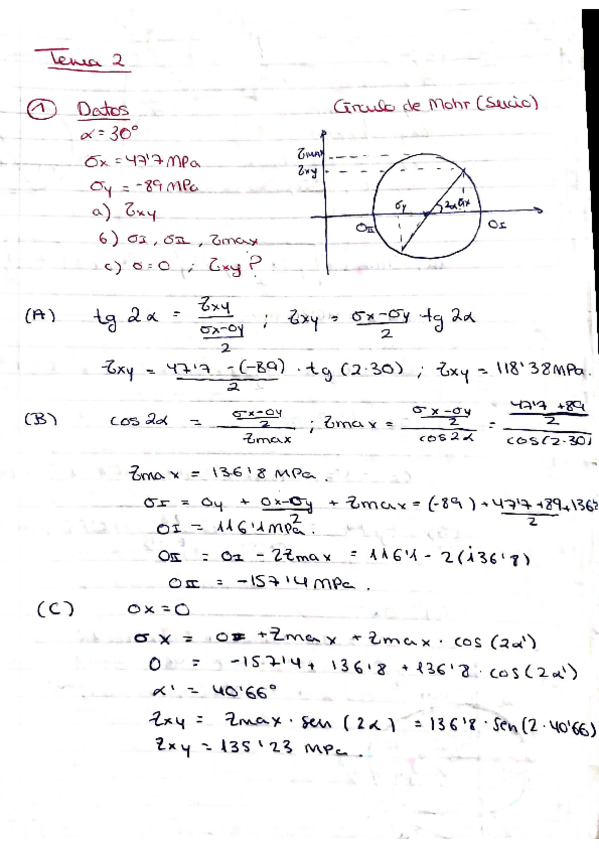 Tema 2
① Datos
Círculo de Mohr (Sucio)
α = 30°
σx = 47'7 MPa
σy = -89 MPa
a) τxy
b) σI, σII, τmax
c) σ=0 ; τxy?
τmax
τxy
σy
2α
σx
σII
σI
(A) tg 2α = τxy / (σx-σy / 2) ; τxy = σx-σy / 2 tg 2α
τxy = 47'7 - (-89) / 2 · tg (2·30) ; τxy = 118'38 MPa.
(B) cos 2α = (σx-σy / 2) / τmax ; τmax = (σx-σy / 2) / cos 2α = (47'7 + 89 / 2) / cos(2·30)
τmax = 136'8 MPa.
σI = σy + σx-σy / 2 + τmax = (-89) + 47'7+89 / 2 + 136'
σI = 116'1 MPa.
σII = σI - 2τmax = 116'1 - 2(136'8)
σII = -157'4 MPa.
(C) σx = 0
σx = σII + τmax + τmax · cos (2α')
0 = -157'4 + 136'8 + 136'8 · cos (2α')
α' = 40'66°
τxy = τmax · sen (2α) = 136'8 · sen(2·40'66)
τxy = 135'23 MPa.